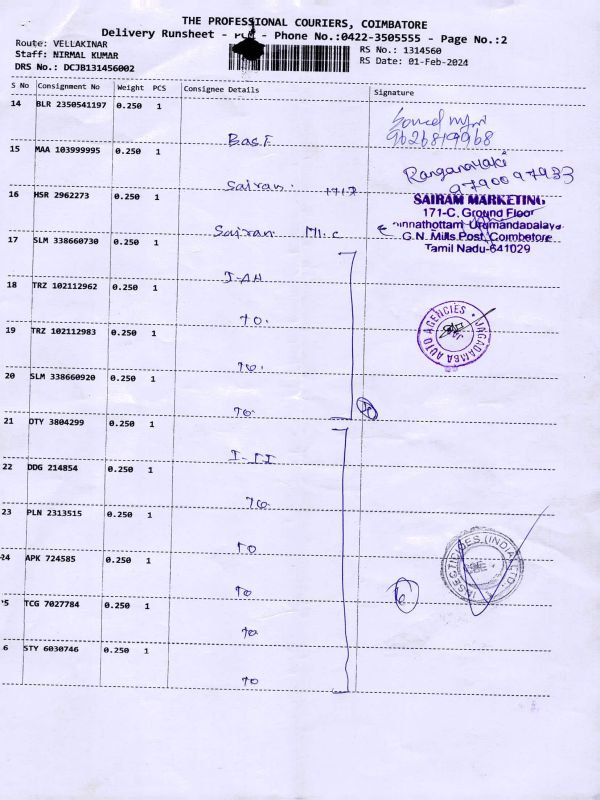 THE PROFESSIONAL COURIERS, COIMBATORE
Delivery Runsheet - - Phone No.:0422-3505555 - Page No.:2
Route: VELLAKINAR
Staff: NIRMAL KUMAR
DRS No.: DCJB131456002
RS No.: 1314560
RS Date: 01-Feb-2024
S No Consignment No Weight PCS Consignee Details Signature
14 BLR 2350541197 0.250 1
9626819968
15 MAA 103999995 0.250 1
Sairam
Ranganayaki
9790097933
16 HSR 2962273 0.250 1
Sairam
SAIRAM MARKETING
171-C, Ground Floor
G.N. Mills Post, Coimbatore
Tamil Nadu-641029
17 SLM 338660730 0.250 1
18 TRZ 102112962 0.250 1
TO
JAGADAMBA AUTO AGENCIES
19 TRZ 102112983 0.250 1
TO
20 SLM 338660920 0.250 1
TO
21 OTY 3804299 0.250 1
22 DDG 214854 0.250 1
TO
23 PLN 2313515 0.250 1
TO
24 APK 724585 0.250 1
TO
INSECTICIDES (INDIA) LTD.
CBE
6
25 TCG 7027784 0.250 1
TO
6 STY 6030746 0.250 1
TO